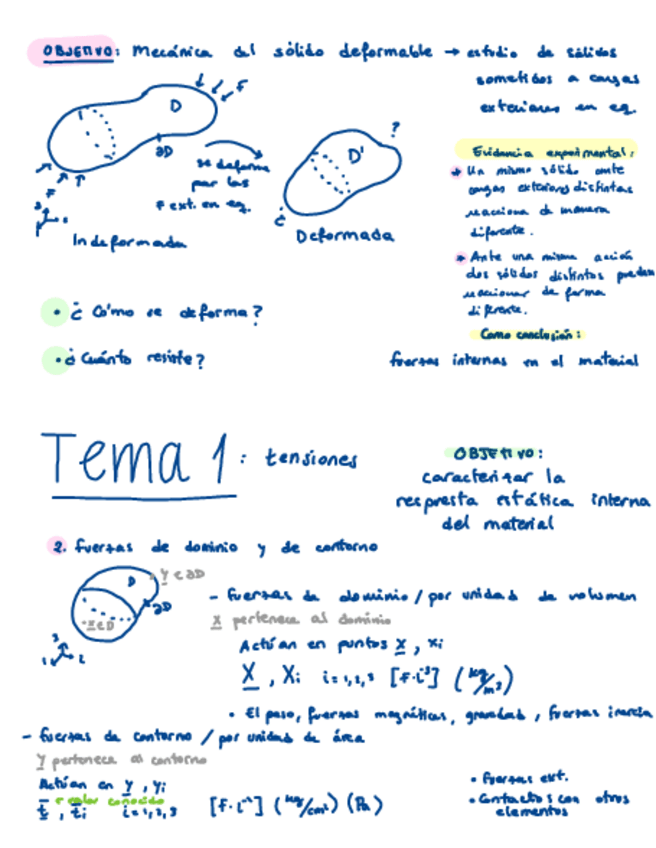 OBJETIVO: Mecánica del sólido deformable → estudio de sólidos
sometidos a cargas
exteriores en eq.
F
D
∂D
F
se deforma
por las
F ext. en eq.
D'
?
¿
Indeformada
Deformada
Evidencia experimental:
* Un mismo sólido ante
cargas exteriores distintas
reacciona de manera
diferente.
* Ante una misma acción
dos sólidos distintos pueden
reaccionar de forma
diferente.
Como conclusión:
fuerzas internas en el material
• ¿Cómo se deforma?
• ¿Cuánto resiste?
Tema 1: tensiones
OBJETIVO:
caracterizar la
respuesta estática interna
del material
2. fuerzas de dominio y de contorno
D
y ∈ ∂D
∂D
x ∈ D
3
1
2
- fuerzas de dominio / por unidad de volumen
x pertenece al dominio
Actúan en puntos x, xi
X, Xi i=1,2,3 [F·L⁻³] (kg/m³)
• El peso, fuerzas magnéticas, gravedad, fuerzas inercia
- fuerzas de contorno / por unidad de área
y pertenece al contorno
Actúan en y, yi
→ valor conocido
t̄, t̄i i=1,2,3 [F·L⁻²] (kg/cm²) (Pa)
• fuerzas ext.
• Contactos con otros
elementos